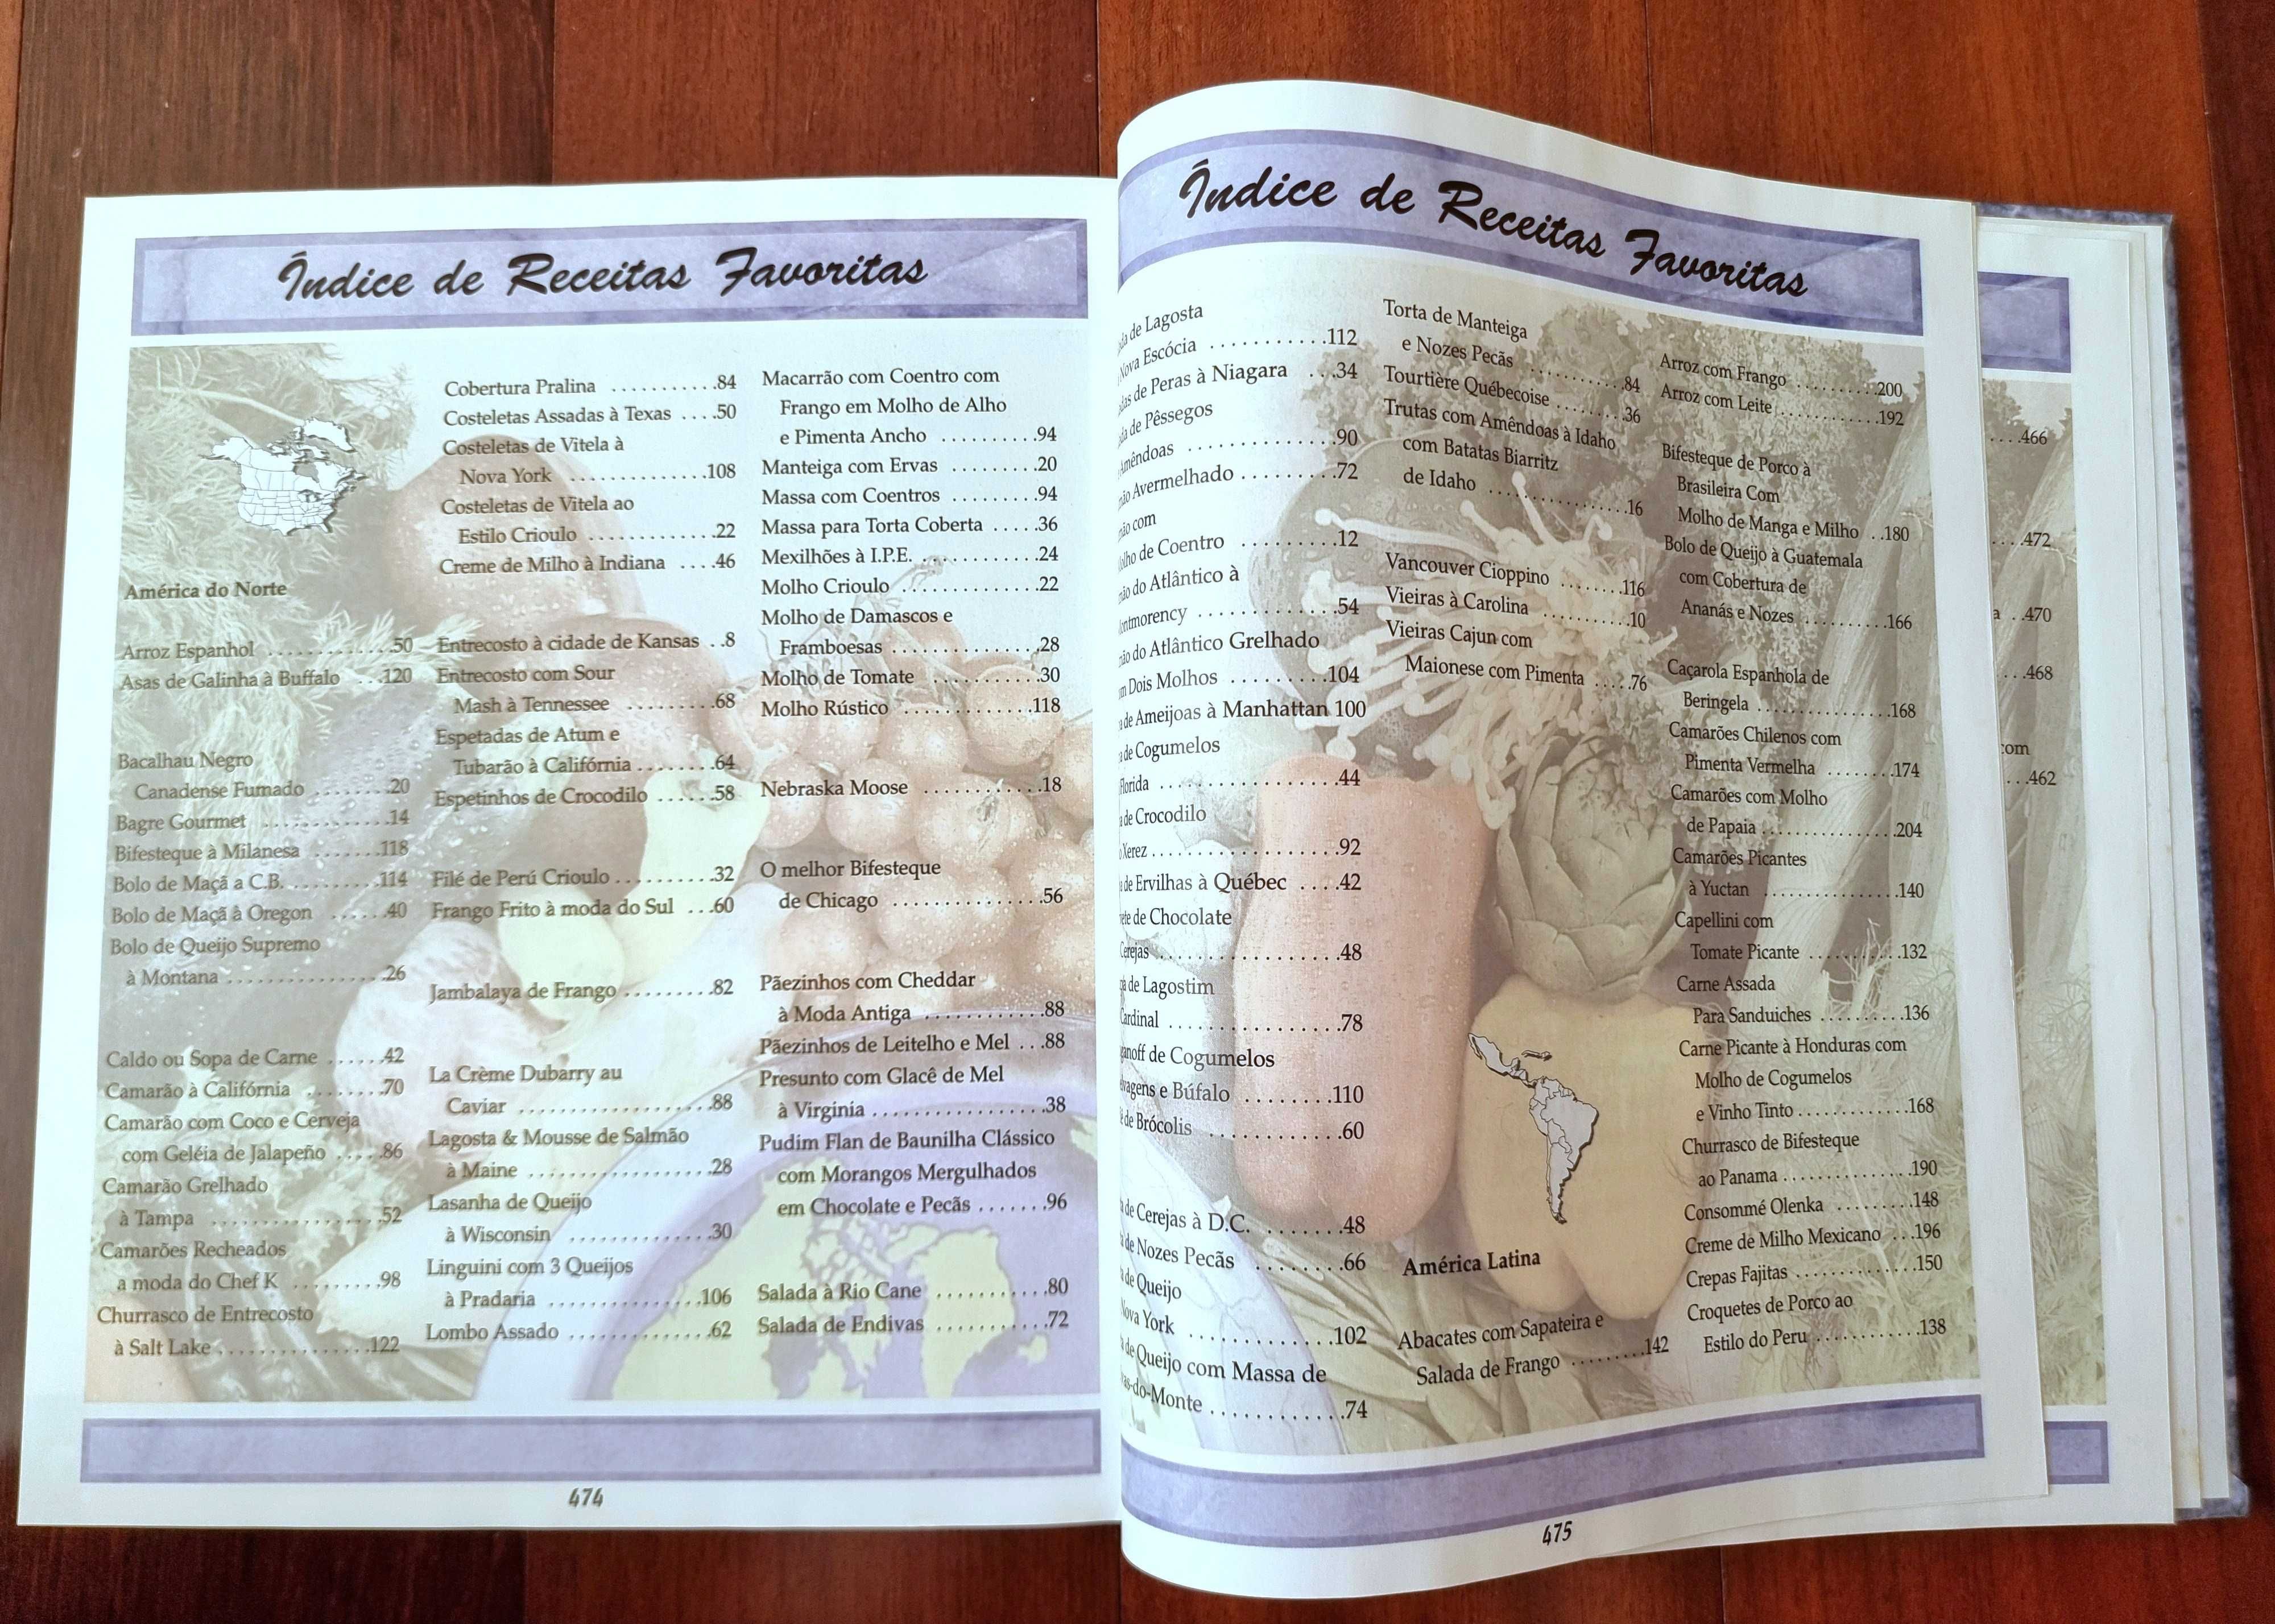 Índice de Receitas Favoritas
América do Norte
Arroz Espanhol ............50
Asas de Galinha à Buffalo ...120
Bacalhau Negro
Canadense Fumado ........20
Bagre Gourmet .............14
Bifesteque à Milanesa .......118
Bolo de Maçã a C.B. .........114
Bolo de Maçã à Oregon ......40
Bolo de Queijo Supremo
à Montana ................26
Caldo ou Sopa de Carne ......42
Camarão à Califórnia ........70
Camarão com Coco e Cerveja
com Geléia de Jalapeño .....86
Camarão Grelhado
à Tampa .................52
Camarões Recheados
a moda do Chef K .........98
Churrasco de Entrecosto
à Salt Lake ...............122
Cobertura Pralina ...........84
Costeletas Assadas à Texas ....50
Costeletas de Vitela à
Nova York .............108
Costeletas de Vitela ao
Estilo Crioulo ............22
Creme de Milho à Indiana ....46
Entrecosto à cidade de Kansas ..8
Entrecosto com Sour
Mash à Tennessee .........68
Espetadas de Atum e
Tubarão à Califórnia ........64
Espetinhos de Crocodilo ......58
Filé de Perú Crioulo ..........32
Frango Frito à moda do Sul ...60
Jambalaya de Frango .........82
La Crème Dubarry au
Caviar ..................88
Lagosta & Mousse de Salmão
à Maine .................28
Lasanha de Queijo
à Wisconsin .............30
Linguini com 3 Queijos
à Pradaria ..............106
Lombo Assado .............62
Macarrão com Coentro com
Frango em Molho de Alho
e Pimenta Ancho .........94
Manteiga com Ervas ........20
Massa com Coentros ........94
Massa para Torta Coberta .....36
Mexilhões à I.P.E. ...........24
Molho Crioulo .............22
Molho de Damascos e
Framboesas ..............28
Molho de Tomate ..........30
Molho Rústico ............118
Nebraska Moose ...........18
O melhor Bifesteque
de Chicago ..............56
Pãezinhos com Cheddar
à Moda Antiga ...........88
Pãezinhos de Leitelho e Mel ...88
Presunto com Glacê de Mel
à Virgínia ................38
Pudim Flan de Baunilha Clássico
com Morangos Mergulhados
em Chocolate e Pecãs .......96
Salada à Rio Cane ...........80
Salada de Endivas ...........72
474
Índice de Receitas Favoritas
de Lagosta
Nova Escócia ...........112
de Peras à Niagara ...34
de Pêssegos
..............90
Avermelhado .........72
com
de Coentro .........12
do Atlântico à
.............54
do Atlântico Grelhado
Dois Molhos .........104
de Ameijoas à Manhattan 100
de Cogumelos
Florida .................44
de Crocodilo
Xerez .................92
de Ervilhas à Québec ....42
de Chocolate
Cerejas .................48
de Lagostim
Cardinal ................78
de Cogumelos
e Búfalo ........110
de Brócolis ............60
de Cerejas à D.C. .......48
de Nozes Pecãs ........66
de Queijo
Nova York .............102
de Queijo com Massa de
............74
Torta de Manteiga
e Nozes Pecãs ...........84
Tourtière Québecoise ........36
Trutas com Amêndoas à Idaho
com Batatas Biarritz
de Idaho ...............16
Vancouver Cioppino .......116
Vieiras à Carolina ...........10
Vieiras Cajun com
Maionese com Pimenta .....76
América Latina
Abacates com Sapateira e
Salada de Frango .........142
Arroz com Frango .........200
Arroz com Leite ............192
Bifesteque de Porco à
Brasileira Com
Molho de Manga e Milho ..180
Bolo de Queijo à Guatemala
com Cobertura de
Ananás e Nozes ..........166
Caçarola Espanhola de
Beringela ................168
Camarões Chilenos com
Pimenta Vermelha ........174
Camarões com Molho
de Papaia ................204
Camarões Picantes
à Yuctan ................140
Capellini com
Tomate Picante ..........132
Carne Assada
Para Sanduiches ..........136
Carne Picante à Honduras com
Molho de Cogumelos
e Vinho Tinto .............168
Churrasco de Bifesteque
ao Panama ...............190
Consommé Olenka .........148
Creme de Milho Mexicano ...196
Crepas Fajitas ..............150
Croquetes de Porco ao
Estilo do Peru ............138
475
....466
....472
..470
...468
com
...462